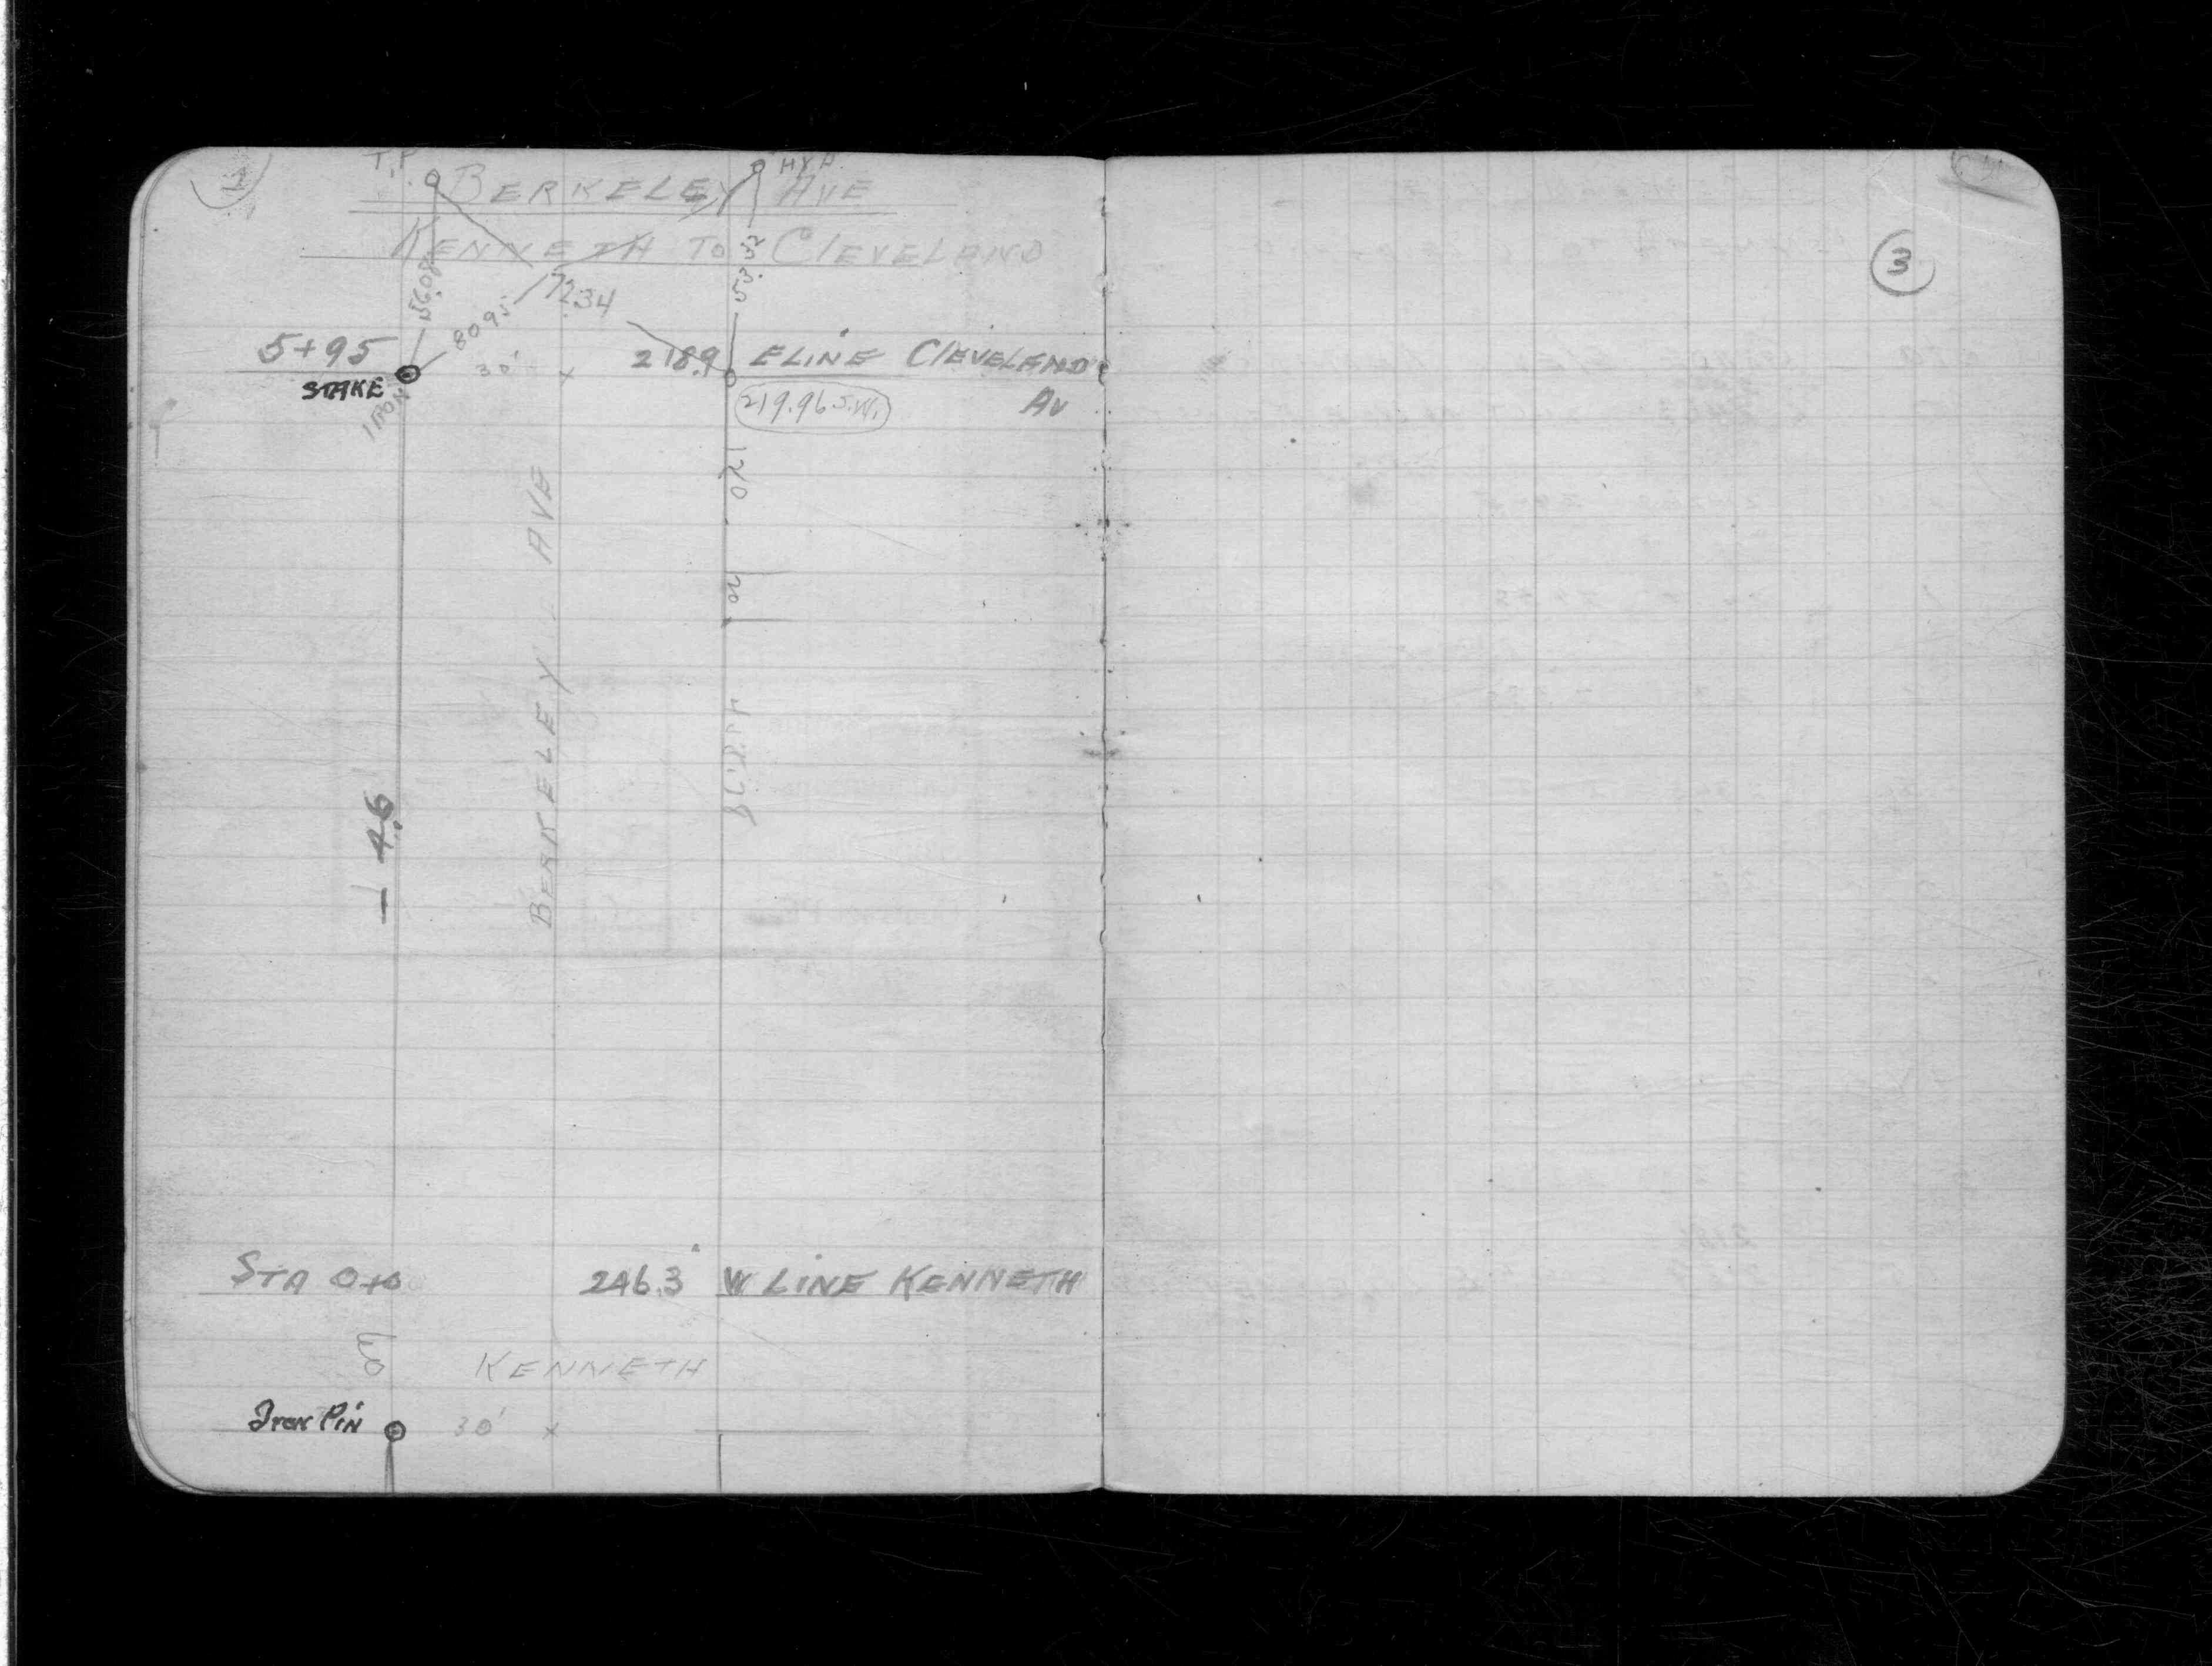 T.P. HYD.
BERKELEY AVE
KENNETH TO CLEVELAND
3
56.08
80.95
72.34
53.32
5+95
STAKE
IRON
30'
218.9
E LINE CLEVELAND
AV
219.96 S.W.
120
20
BERKELEY AVE
- 4.6
STA 0+0
246.3
W LINE KENNETH
KENNETH
Iron Pin
30'